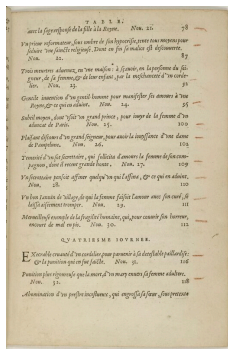 TABLE.
avec la sage response de la fille à la Royne. Nou. 21. 78
Un prieur reformateur, sous umbre de son hypocrisie, tente tous moyens pour
seduire une saincte religieuse. Dont en fin sa malice est descouverte.
Nou. 22. 87
Trois meurtres advenuz, en une maison: à sçavoir, en la personne du sei-
gneur, de sa femme, & de leur enfant, par la meschanceté d'un corde-
lier. Nou. 23.
Gentile invention d'un gentil homme pour manifester ses amours à une
Royne, & ce qui en advint. Nou. 24. 95
Subtil moyen, dont usoit un grand prince, pour jouyr de la femme d'un
advocat de Paris. Nou. 25.
Plaisant discours d'un grand seigneur, pour avoir la jouissance d'une dame
de Pampelune. Nou. 26.
Temerité d'un sot secretaire, qui sollicita d'amours la femme de son com-
pagnon, dont il receut grande honte. Nou. 27. 109
Un secretaire pensoit affiner quelqu'un qui l'affina, & ce qui en advint.
Nou. 28. 110
Un bon Jannin de village, de qui la femme faisoit l'amour avec son curé, se
laissa aisement tromper. Nou. 29. 111
Merveilleuse exemple de la fragilité humaine, qui, pour couvrir son horreur,
encourt de mal en pis. Nou. 30. 112
QUATRIESME JOURNEE.
Execrable cruauté d'un cordelier, pour parvenir à sa detestable paillardise:
& la punition qui en fut faicte. Nou. 31. 116
Punition plus rigoureuse que la mort, d'un mary envers sa femme adultere.
Nou. 32. 118
Abomination d'un prestre incestueux, qui engrossa sa sœur, sous pretexte